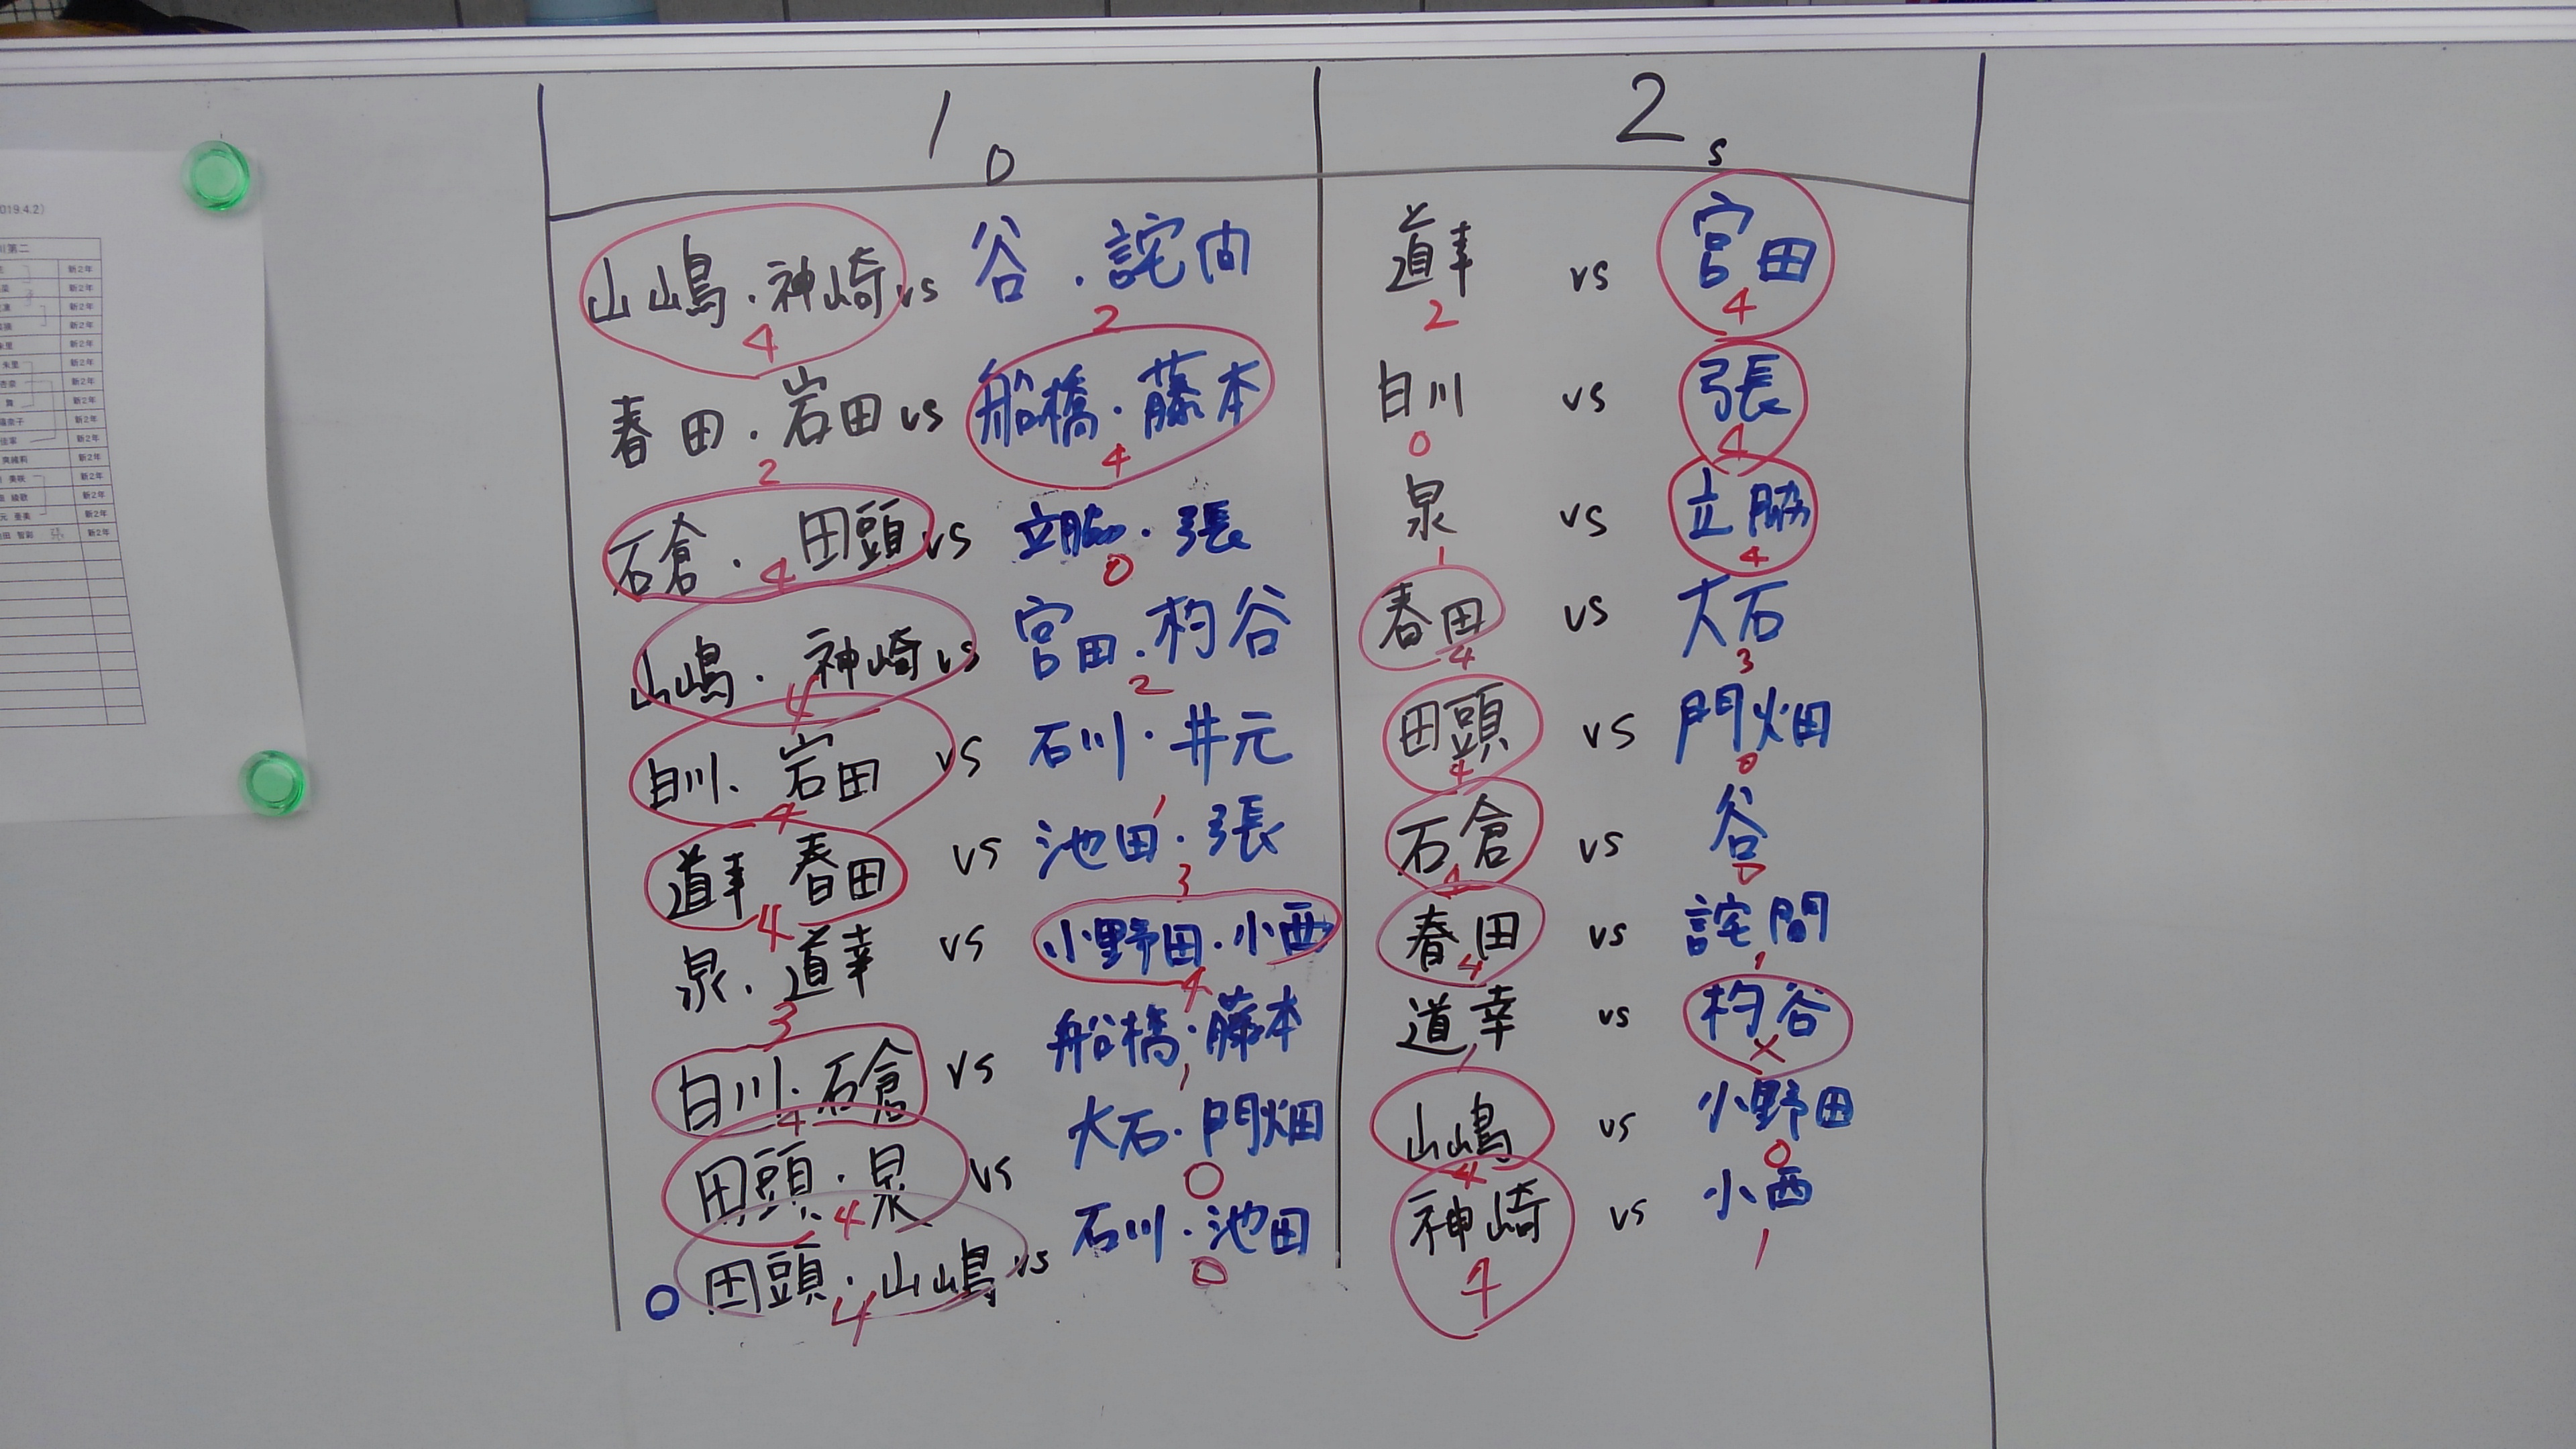 1 D
山嶋・神崎 vs 谷・詫間
4 2
春田・岩田 vs 船橋・藤本
2 4
石倉・田頭 vs 立脇・張
4 0
山嶋・神崎 vs 宮田・杓谷
4 2
白川・岩田 vs 石川・井元
4 1
道幸 春田 vs 池田・張
4 3
泉・道幸 vs 小野田・小西
3 4
白川・石倉 vs 船橋・藤本
4 1
田頭・泉 vs 大石・門畑
4 0
○ 田頭・山嶋 vs 石川・池田
4 0
2 s
道幸 vs 宮田
2 4
白川 vs 張
0 4
泉 vs 立脇
1 4
春田 vs 大石
4 3
田頭 vs 門畑
4 0
石倉 vs 谷
4 0
春田 vs 詫間
4 1
道幸 vs 杓谷
1
山嶋 vs 小野田
4 0
神崎 vs 小西
4 1
019.4.2)
新2年
新2年
新2年
新2年
新2年
新2年
新2年
新2年
新2年
新2年
新2年
新2年
新2年
新2年
新2年